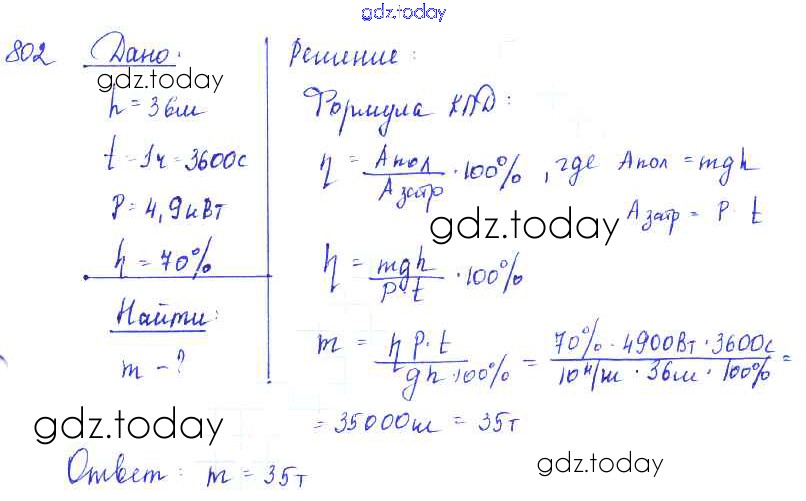 gdz.today
802 Дано:
gdz.today
h = 36м
t = 1ч = 3600с
P = 4,9кВт
η = 70%
Найти:
m - ?
Решение:
Формула КПД:
η = Aпол / Aзатр · 100%, где Aпол = mgh
Aзатр = P · t
gdz.today
η = mgh / P·t · 100%
m = η P·t / gh·100% = 70% · 4900Вт · 3600с / 10 Н/м · 36м · 100% =
= 35000м = 35т
gdz.today
Ответ: m = 35т
gdz.today